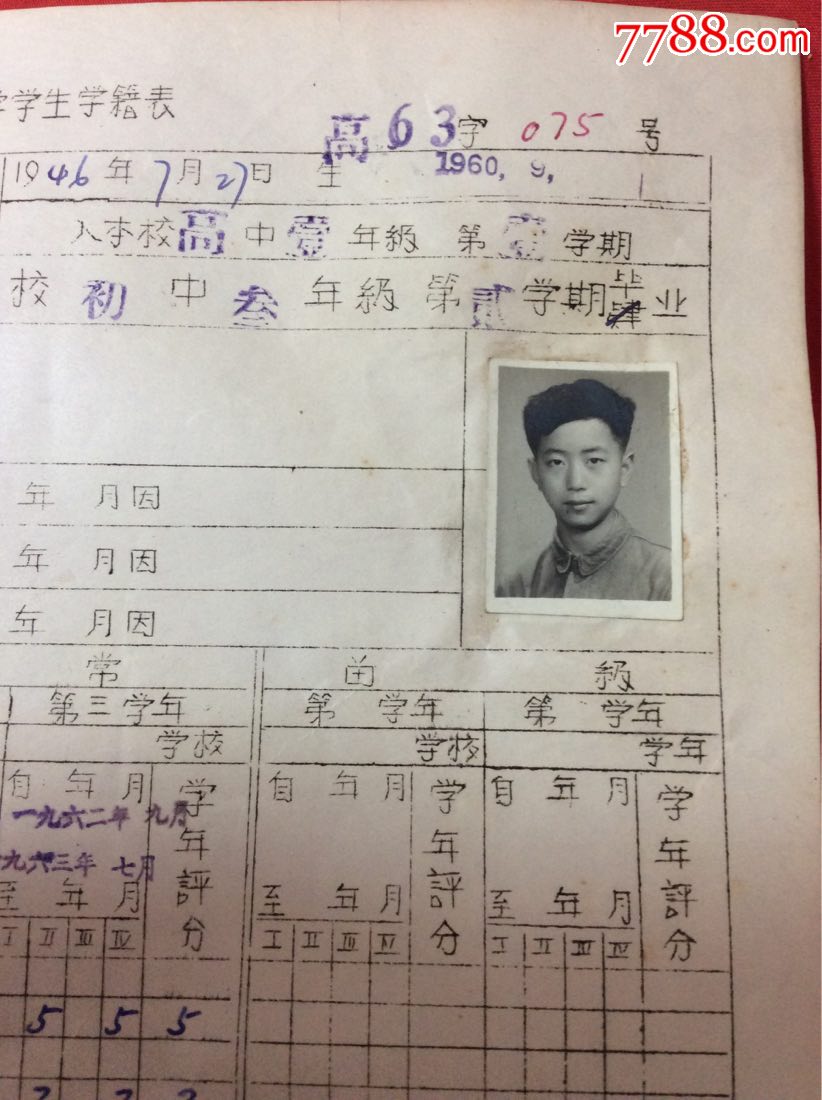 7788.com
学学生学籍表
高63字 075 号
1946年7月27日 生 1960. 9. 1
入本校高中壹年級 第壹学期
校初中叁年級第贰学期毕業业
年 月因
年 月因
年 月因
常 苗 級
第三学年 第 学年 第 学年
学校 学校 学年
自 年 月 学年評分 自 年 月 学年評分 自 年 月 学年評分
一九六二年 九月
九六三年 七月
至 年 月 至 年 月 至 年 月
I II III IV I II III IV I II III IV
5 5 5